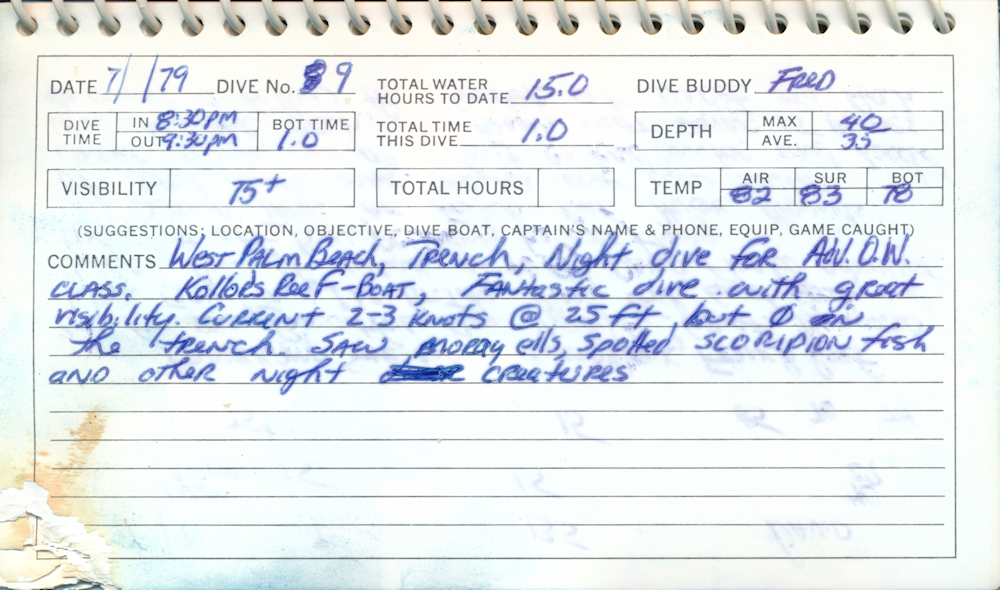 DATE 7/ /79 DIVE No. 9 TOTAL WATER HOURS TO DATE 15.0 DIVE BUDDY FRED
DIVE TIME IN 8:30pm OUT 9:30pm BOT TIME 1.0 TOTAL TIME THIS DIVE 1.0 DEPTH MAX 40 AVE. 35
VISIBILITY 75+ TOTAL HOURS TEMP AIR 82 SUR 83 BOT 78
(SUGGESTIONS; LOCATION, OBJECTIVE, DIVE BOAT, CAPTAIN'S NAME & PHONE, EQUIP, GAME CAUGHT)
COMMENTS WEST PALM BEACH, TRENCH, Night dive FOR ADV. O.W.
CLASS. Kollors REEF-BOAT, FANtastic dive with great
visibility. CURRENT 2-3 knots @ 25 ft but Ø in
the TRENCH. SAW moray ells, spotted SCORIPION fish
AND otheR night creatures